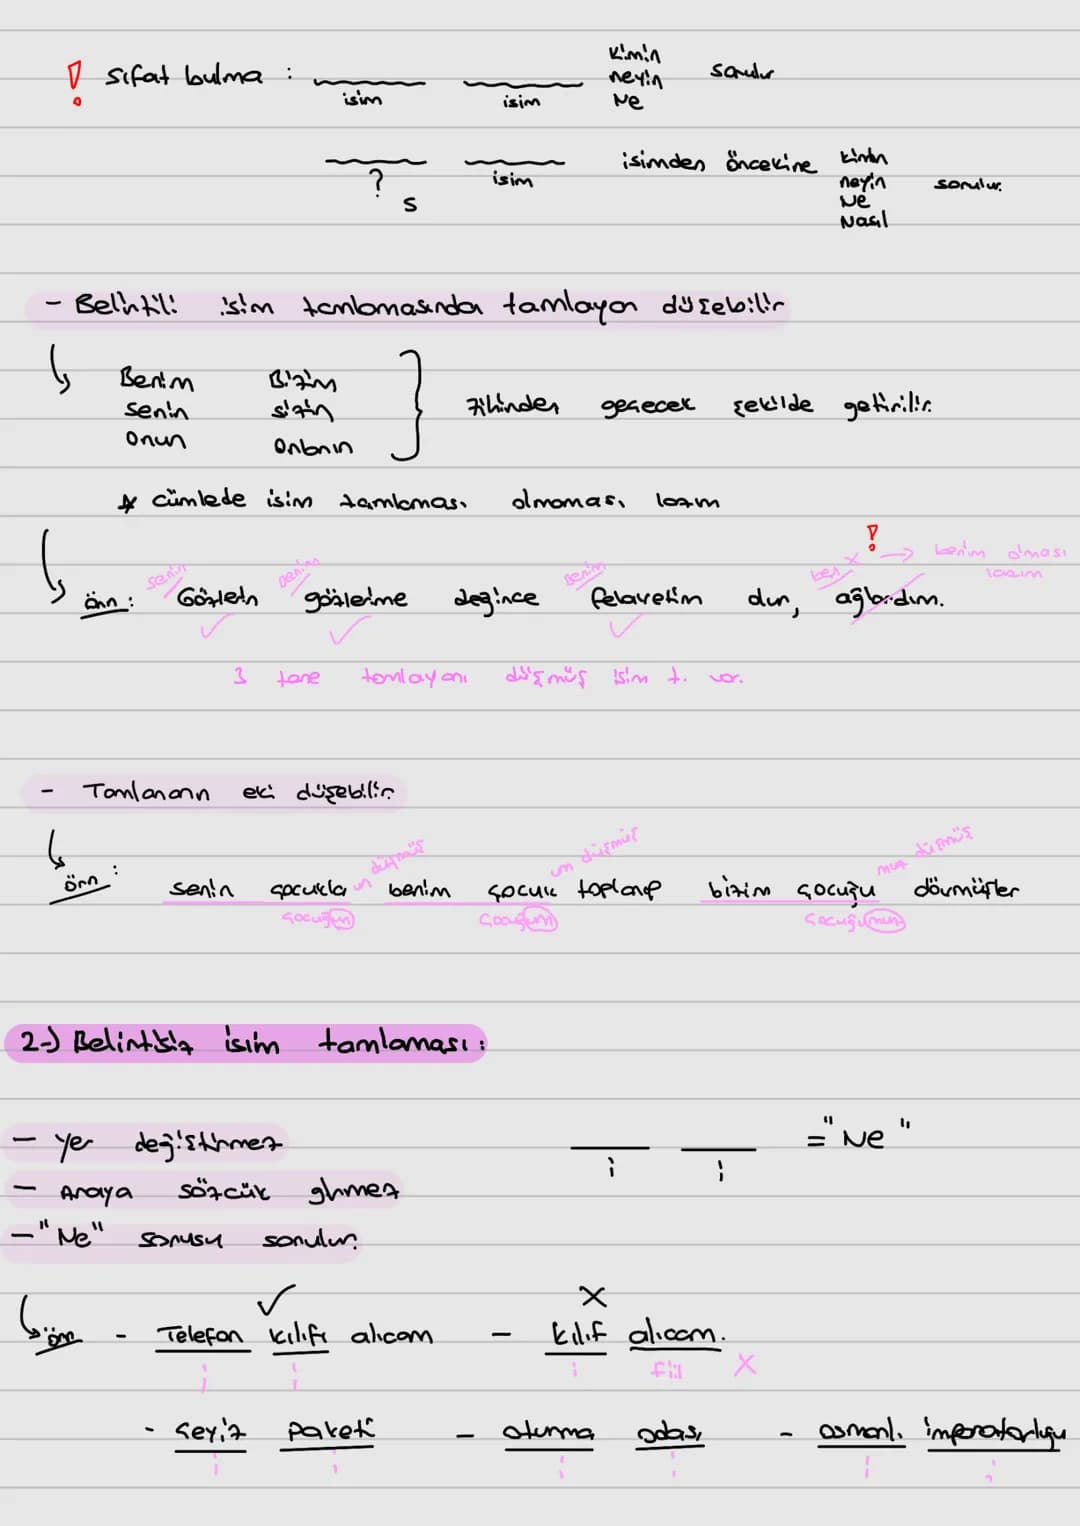 ! sıfat bulma : isim isim Kimin neyin Ne sorulur
? s isim isimden öncekine kimin neyin Ne Nasıl sorulur.
- Belirtili isim tamlamasında tamlayan düşebilir
Benim Bizim
senin sizin
onun Onların
} zihinden geçecek şekilde getirilir.
* cümlede isim tamlaması olmaması lazım
senin benim benim ben x ! → benim olması lazım
örn : Gözlerin gözlerime değince felaketim dım, ağlardım.
3 tane tamlayanı düşmüş isim t. var.
- Tamlananın eki düşebilir.
un düşmüş um düşmüş muz düşmüş
örn : senin çocukla benim çocuk toplanıp bizim çocuğu dövmüşler
çocuğun çocuğum çocuğumuz
2-) Belirtisiz isim tamlaması :
- Yer değiştirmez
i i = "Ne"
- Araya sözcük girmez
- "Ne" sorusu sorulur.
✓ X
örn - Telefon kılıfı alıcam - kılıf alıcam.
i i i fiil X
- çeyiz paketi - oturma odası - osmanlı imparatorluğu
i i i i i i